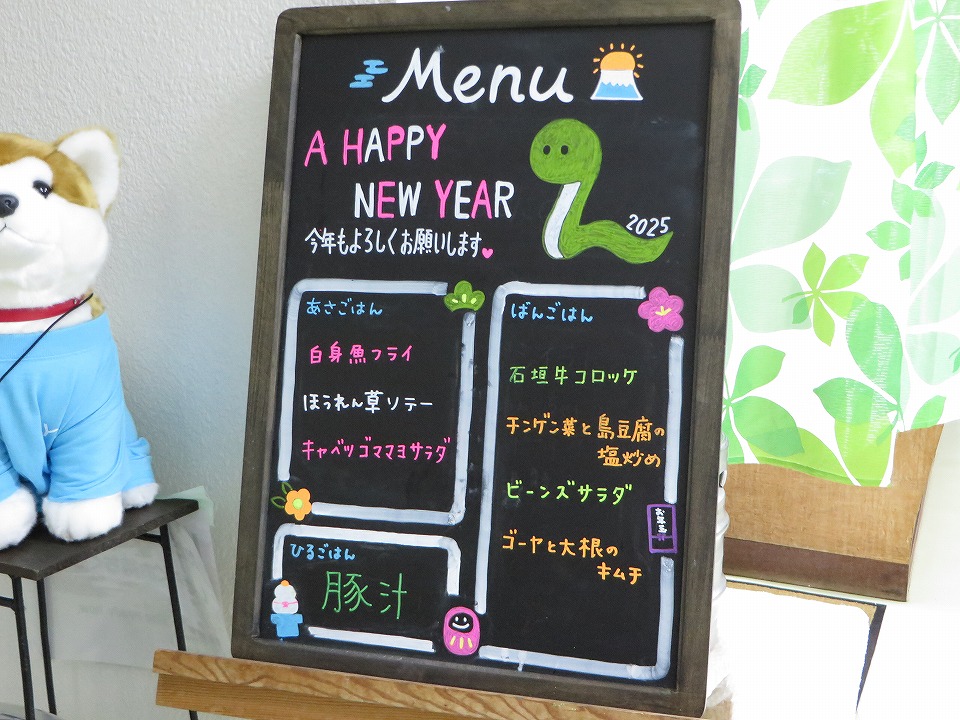 Menu
A HAPPY
NEW YEAR
今年もよろしくお願いします
2025
あさごはん
白身魚フライ
ほうれん草ソテー
キャベツゴママヨサラダ
ひるごはん
豚汁
ばんごはん
石垣牛コロッケ
チンゲン菜と島豆腐の
塩炒め
ビーンズサラダ
ゴーヤと大根の
キムチ
お年玉